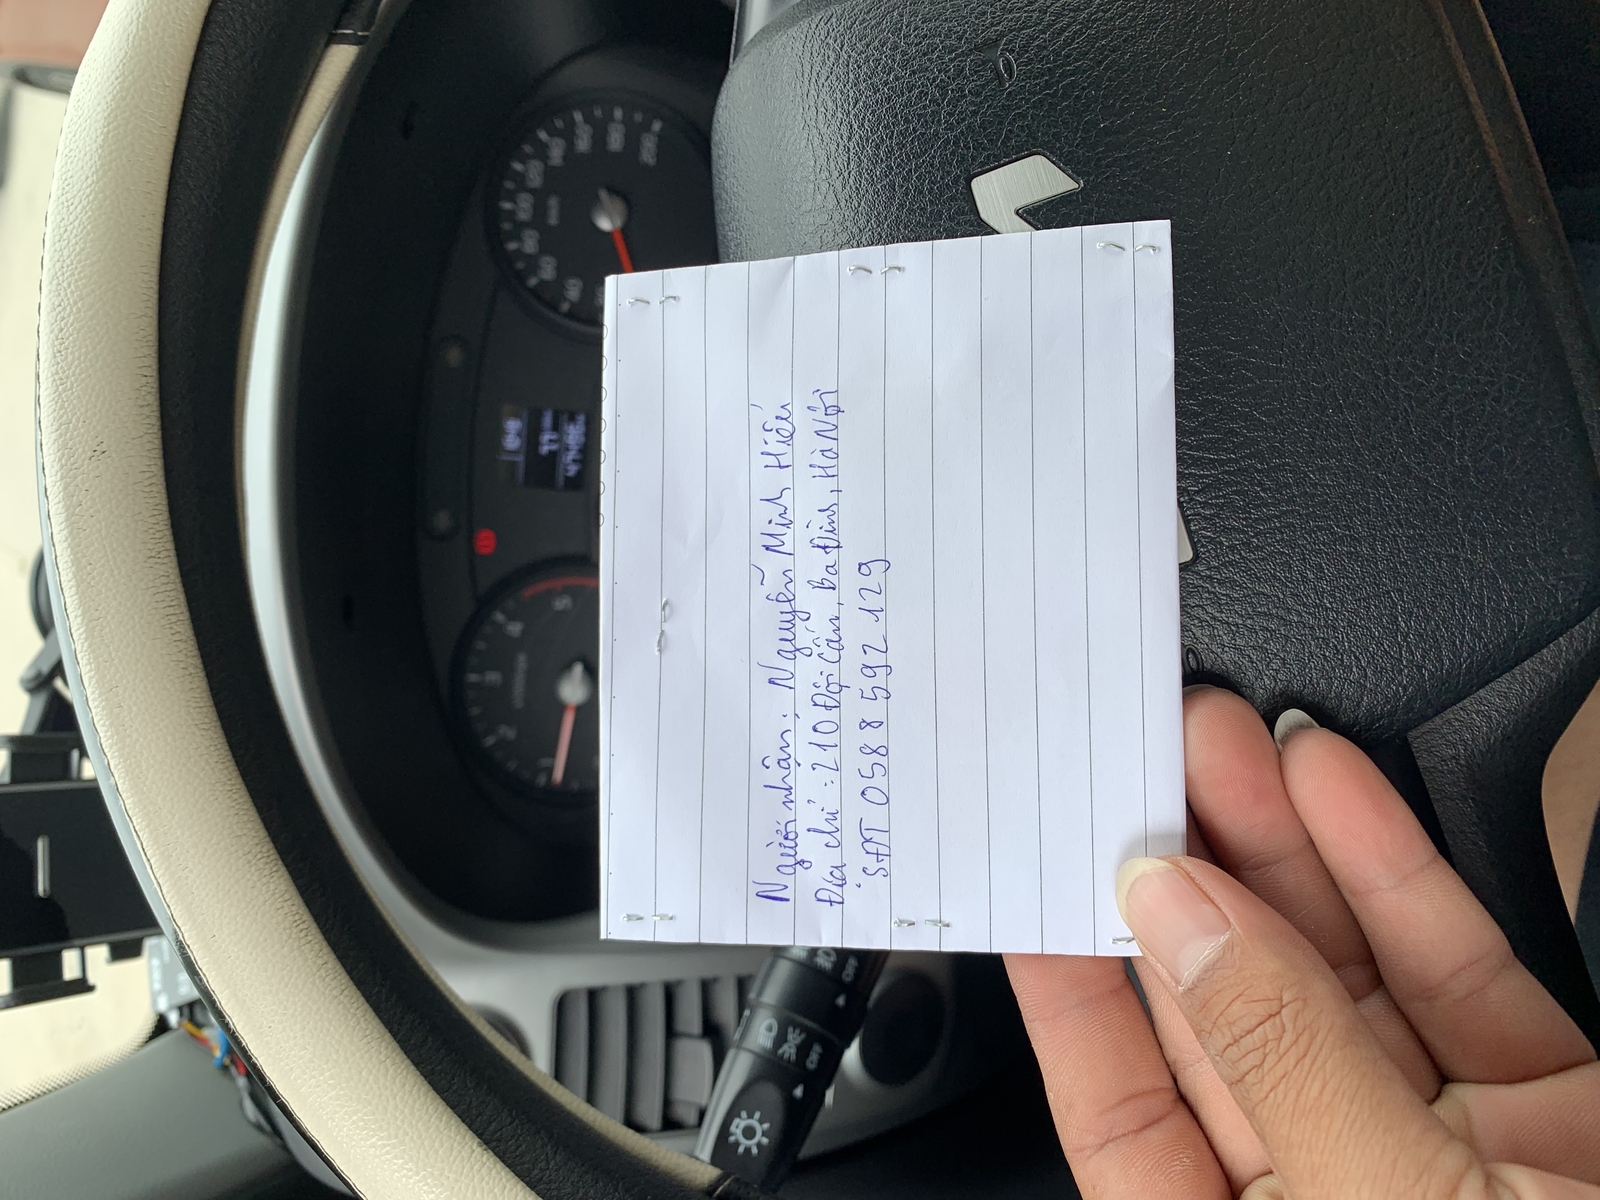 Người nhận: Nguyễn Minh Hiếu
Địa chỉ: 210 Đội Cấn, Ba Đình, Hà Nội
SĐT 0588 592 129
OFF
OFF